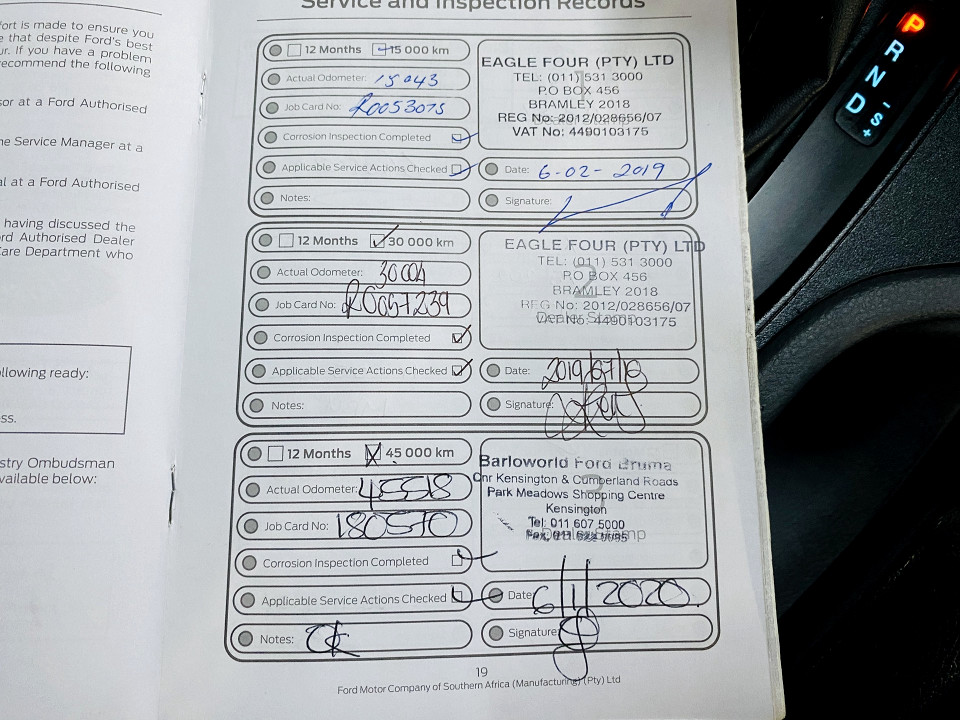 fort is made to ensure you
e that despite Ford's best
ur. If you have a problem
recommend the following
sor at a Ford Authorised
he Service Manager at a
al at a Ford Authorised
having discussed the
rd Authorised Dealer
Care Department who
llowing ready:
ss.
stry Ombudsman
vailable below:
Service and Inspection Records
12 Months 15 000 km
Actual Odometer: 15043
Job Card No: R0053075
Corrosion Inspection Completed
Applicable Service Actions Checked
Notes:
EAGLE FOUR (PTY) LTD
TEL: (011) 531 3000
P.O BOX 456
BRAMLEY 2018
REG No: 2012/028656/07
VAT No: 4490103175
Date: 6-02-2019
Signature:
12 Months 30 000 km
Actual Odometer: 30004
Job Card No: R0057239
Corrosion Inspection Completed
Applicable Service Actions Checked
Notes:
EAGLE FOUR (PTY) LTD
TEL: (011) 531 3000
P.O BOX 456
BRAMLEY 2018
REG No: 2012/028656/07
VAT No: 4490103175
Dealer Stamp
Date: 2019/07/12
Signature:
12 Months 45 000 km
Actual Odometer: 45518
Job Card No: 180570
Corrosion Inspection Completed
Applicable Service Actions Checked
Notes: Ok
Barloworld Ford Bruma
Cnr Kensington & Cumberland Roads
Park Meadows Shopping Centre
Kensington
Tel: 011 607 5000
Dealer Stamp
Date: 6/1/2020.
Signature:
19
Ford Motor Company of Southern Africa (Manufacturing) (Pty) Ltd
P
R
N
D
S
+
-